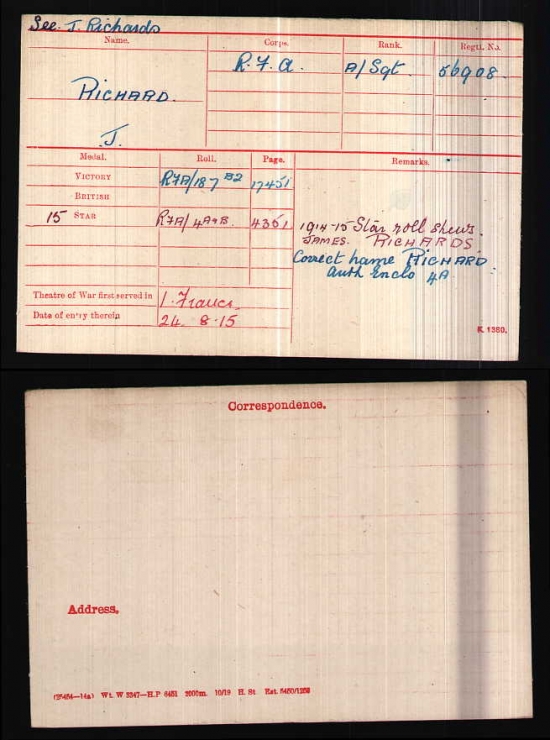 See J. Richards
Name. Corps. Rank. Regtl. No.
R.F.A. A/Sgt 56908.
RICHARD.
J.
Medal. Roll. Page. Remarks.
VICTORY RFA/187 B2 17451
BRITISH
15 STAR RFA/4A+B. 4361 1914-15 Star roll shews.
JAMES. RICHARDS.
Correct name RICHARD
Auth Enclo 4A
Theatre of War first served in 1. France
Date of entry therein 24. 8-15
K. 1380.
Correspondence.
Address.
Wt. W 5347—H.P 2000m. 10/19 H. St